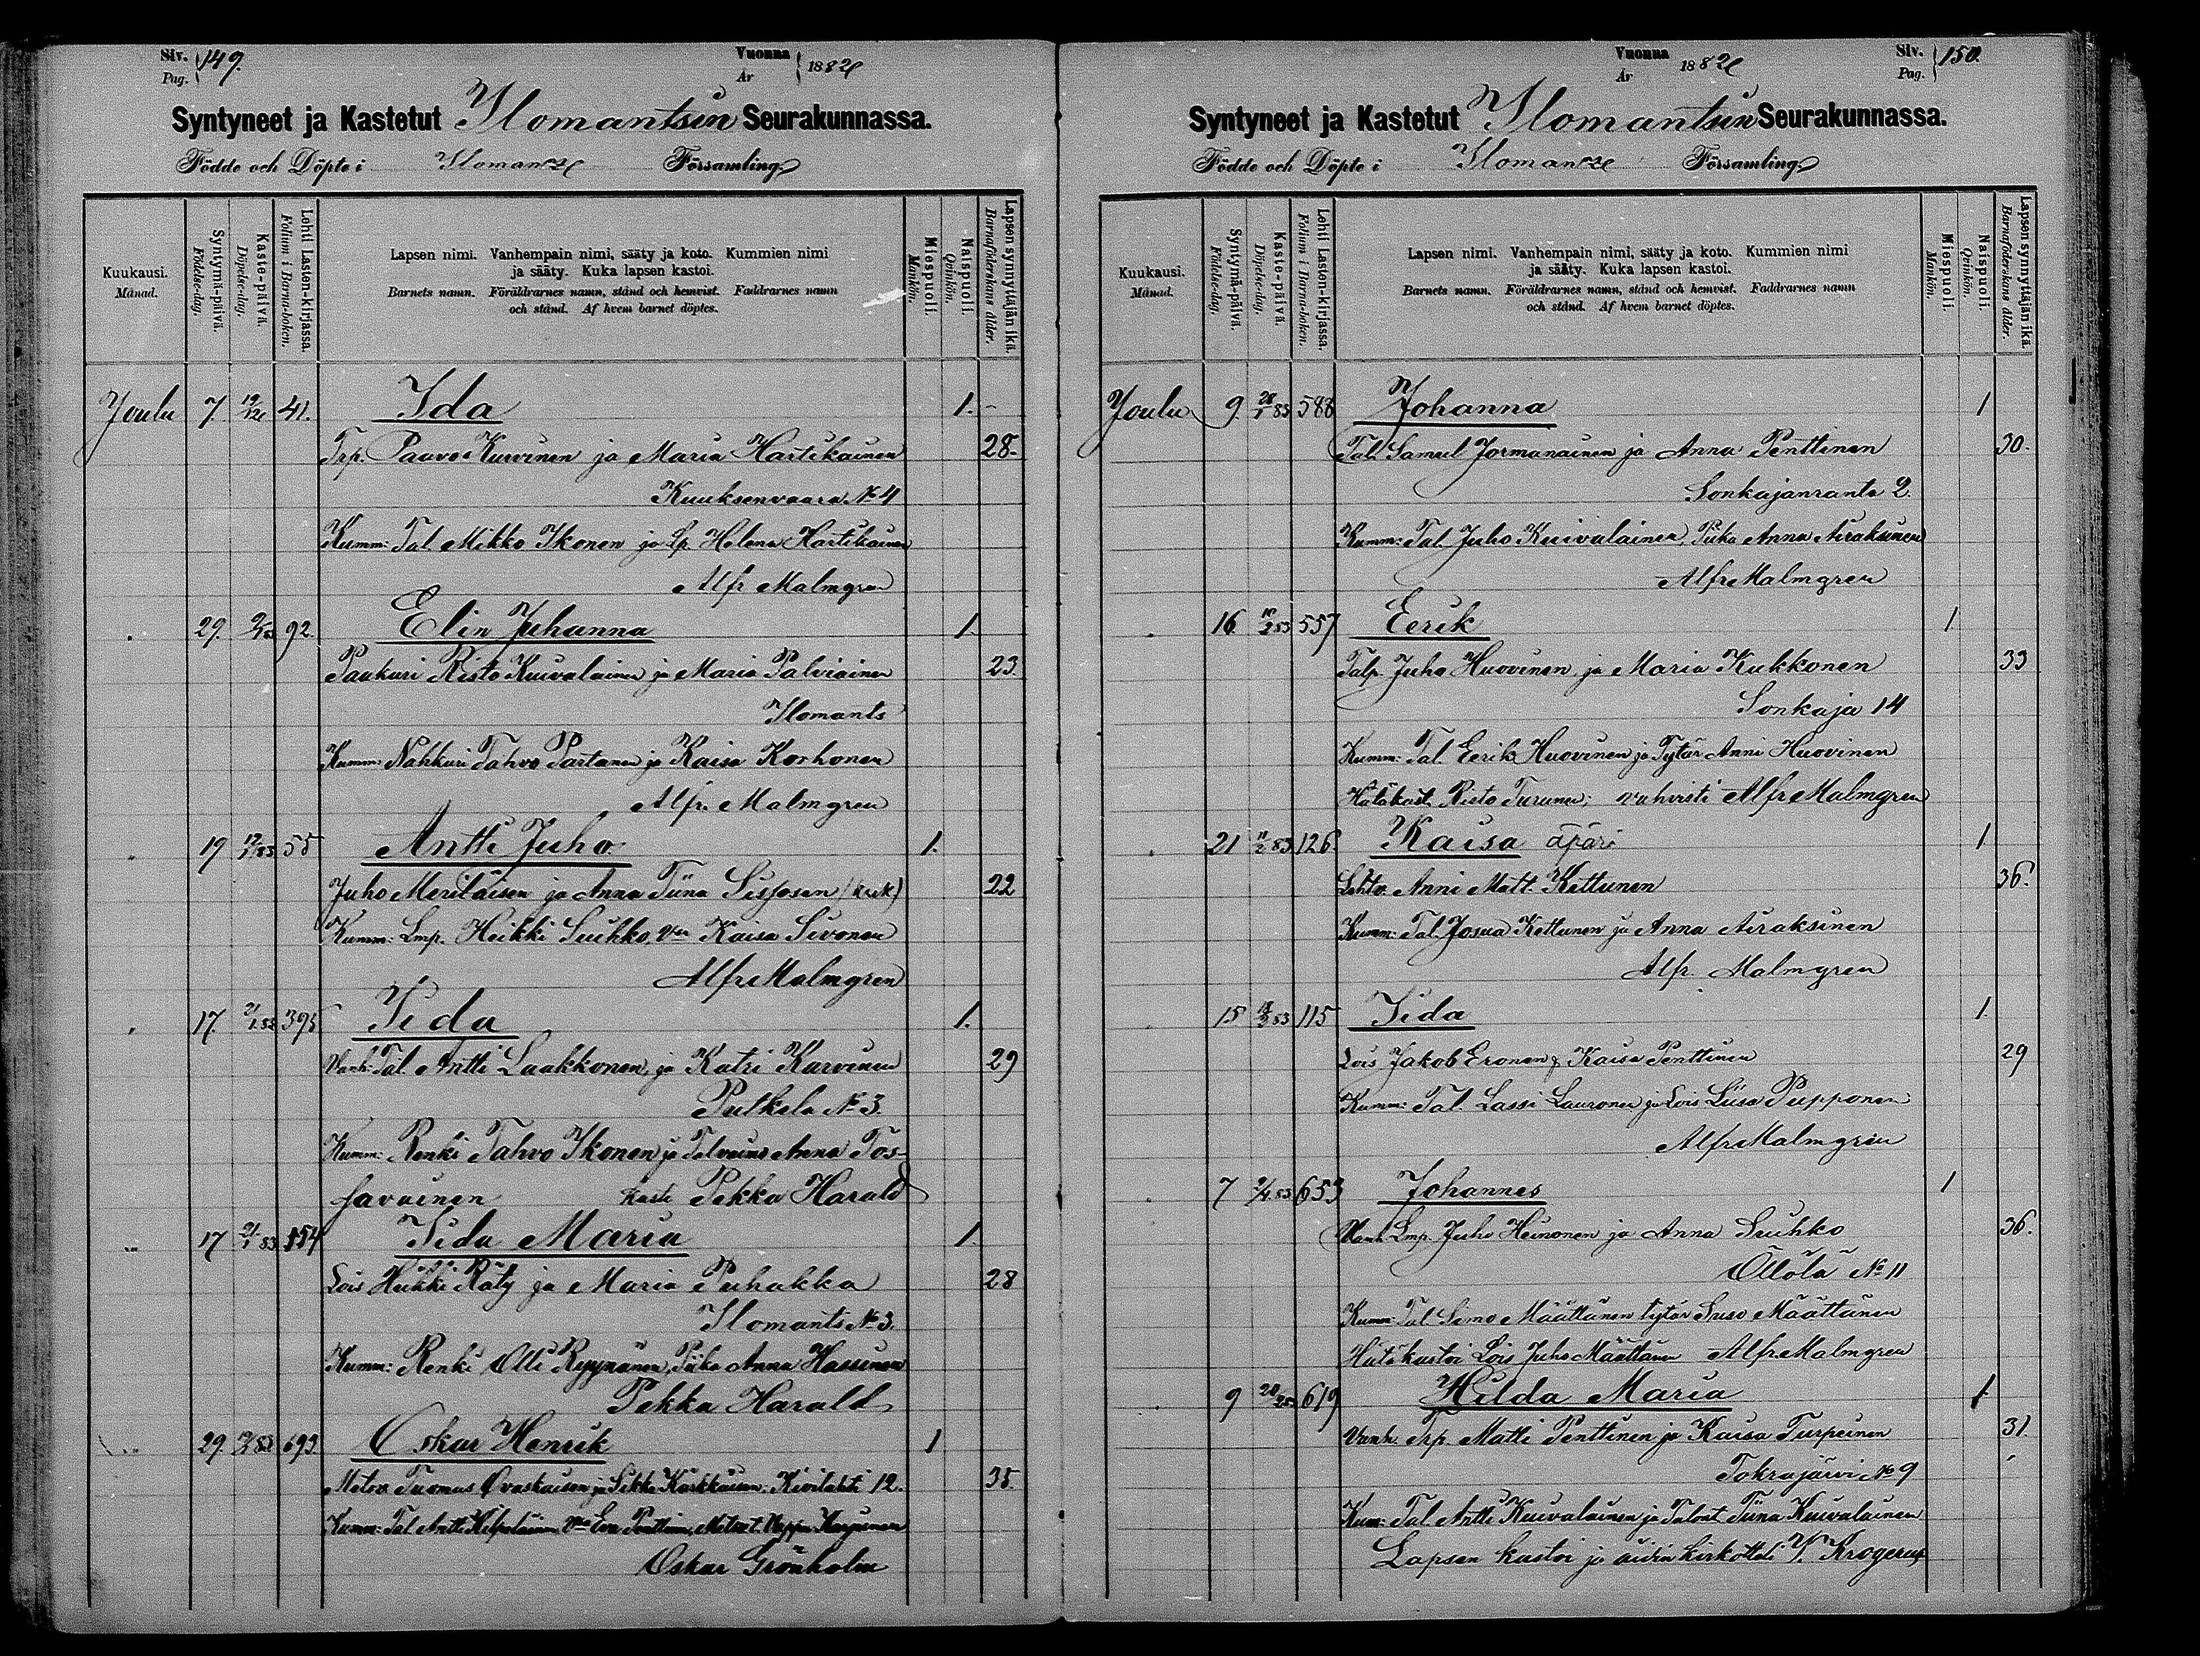 Siv. Pag. 149. Vuonna År 1882
Syntyneet ja Kastetut Ilomantsin Seurakunnassa.
Födde och Döpte i Ilomants Församling
Kuukausi. Månad.
Syntymä-päivä. Födelse-dag.
Kaste-päivä. Döpelse-dag.
Lehti Lasten-kirjassa. Folium i Barna-boken.
Lapsen nimi. Vanhempain nimi, sääty ja koto. Kummien nimi
ja sääty. Kuka lapsen kastoi.
Barnets namn. Föräldrarnes namn, stånd och hemvist. Faddrarnes namn
och stånd. Af hvem barnet döptes.
Miespuoli. Mankön.
Naispuoli. Qvinkön.
Lapsen synnyttäjän ikä. Barnaföderskans ålder.
Joulu 7. 19/12 41. Ida 1.
Trp. Paavo Kurvinen ja Maria Hartikainen 28.
Kuuksenvaara No 4
Kumm: Tal. Mikko Ikonen ja Lp. Helena Hartikainen
Alfr Malmgren
29. 92. Elin Johanna 1.
Paukuri Risto Kuivalainen ja Maria Palviainen 23.
Ilomants
Kumm: Nahkuri Tahvo Partanen ja Kaisa Korhonen
Alfr. Malmgren
19 55 Antti Juho 1.
Juho Meriläisen ja Anna Tiina Sissosen 22
Kumm: Lmp. Heikki Suihko, Kaisa Sivonen
Alfr Malmgren
17. 395 Iida 1.
Vanh: Tal Antti Laakkonen ja Katri Karvinen 29
Putkela No 3.
Kumm: Renki Tahvo Ikonen ja Anna Tos-
savainen kasti Pekka Harald
17 21/1 83 554 Iida Maria 1.
Lois Heikki Räty ja Maria Puhakka 28
Ilomants No 3.
Kumm: Renki Olli Ryynänen, Piika Anna Hassinen
Pekka Harald
29. 693 Oskar Henrik 1
Metsv. Tuomas Ovaskaisen ja Sikke Kärkkäisen. Kivilahti 12. 35.
Kumm: Tal Antti Kilpeläinen Eva Penttinen,
Oskar Grönholm
Vuonna År 1882 Siv. Pag. 150.
Syntyneet ja Kastetut Ilomantsin Seurakunnassa.
Födde och Döpte i Ilomants Församling
Kuukausi. Månad.
Syntymä-päivä. Födelse-dag.
Kaste-päivä. Döpelse-dag.
Lehti Lasten-kirjassa. Folium i Barna-boken.
Lapsen nimi. Vanhempain nimi, sääty ja koto. Kummien nimi
ja sääty. Kuka lapsen kastoi.
Barnets namn. Föräldrarnes namn, stånd och hemvist. Faddrarnes namn
och stånd. Af hvem barnet döptes.
Miespuoli. Mankön.
Naispuoli. Qvinkön.
Lapsen synnyttäjän ikä. Barnaföderskans ålder.
Joulu 9. 28/1 83 588 Johanna 1
Tal. Samul Jormanainen ja Anna Penttinen 30.
Sonkajanranta 2.
Kumm: Tal. Juho Kuivalainen, Piika Anna Airaksinen
Alfr Malmgren
16. 557 Eerik 1
Talp. Juho Huovinen ja Maria Kukkonen 33
Sonkaja 14
Kumm: Tal. Eerik Huovinen ja Tytär Anni Huovinen
Hätäkast. Risto Turunen; vahvisti Alfr Malmgren
21 126 Kaisa äpäri 1
Lehto. Anni Matt. Kettunen 36.
Kumm: Tal. Josua Kettunen ja Anna Airaksinen
Alfr. Malmgren
15 115 Iida 1.
Lois Jakob Eronen & Kaisa Penttinen 29
Kumm: Tal. Lassi Lauronen ja Lois Liisa Piipponen
Alfr Malmgren
7 653 Johannes 1
Vanh. Lmp. Juho Heinonen ja Anna Suihko 36.
Öllölä No 11
Kumm: Tal. Simo Määttänen tytär Susa Määttänen
Hätäkastoi Lois Juho Määttänen Alfr Malmgren
9 619 Hilda Maria 1
Vanh. Trp. Matti Penttinen ja Kaisa Turpeinen 31.
Tokrajärvi No 9
Kum: Tal. Antti Kuivalainen ja Tiina Kuivalainen
Lapsen kastoi ja äidin kirkotteli Krogerus